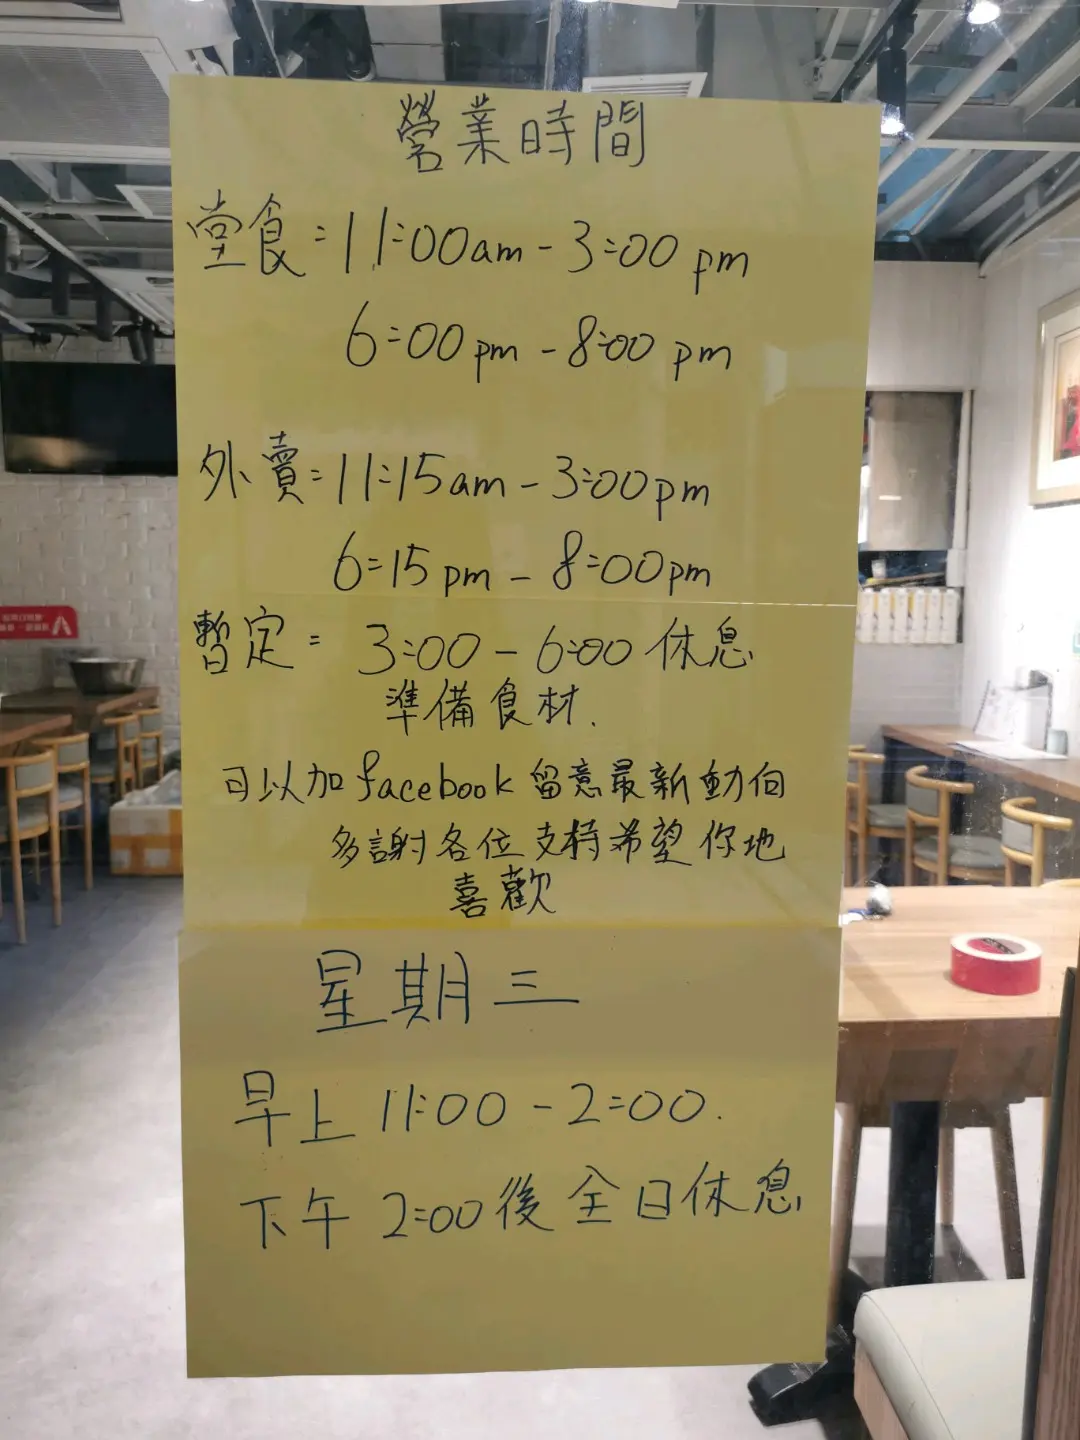 營業時間
堂食:11:00am-3:00pm
6:00pm-8:00pm
外賣:11:15am-3:00pm
6:15pm-8:00pm
暫定:3:00-6:00休息
準備食材.
可以加facebook留意最新動向
多謝各位支持希望你地
喜歡
星期三
早上 11:00-2:00.
下午 2:00後全日休息